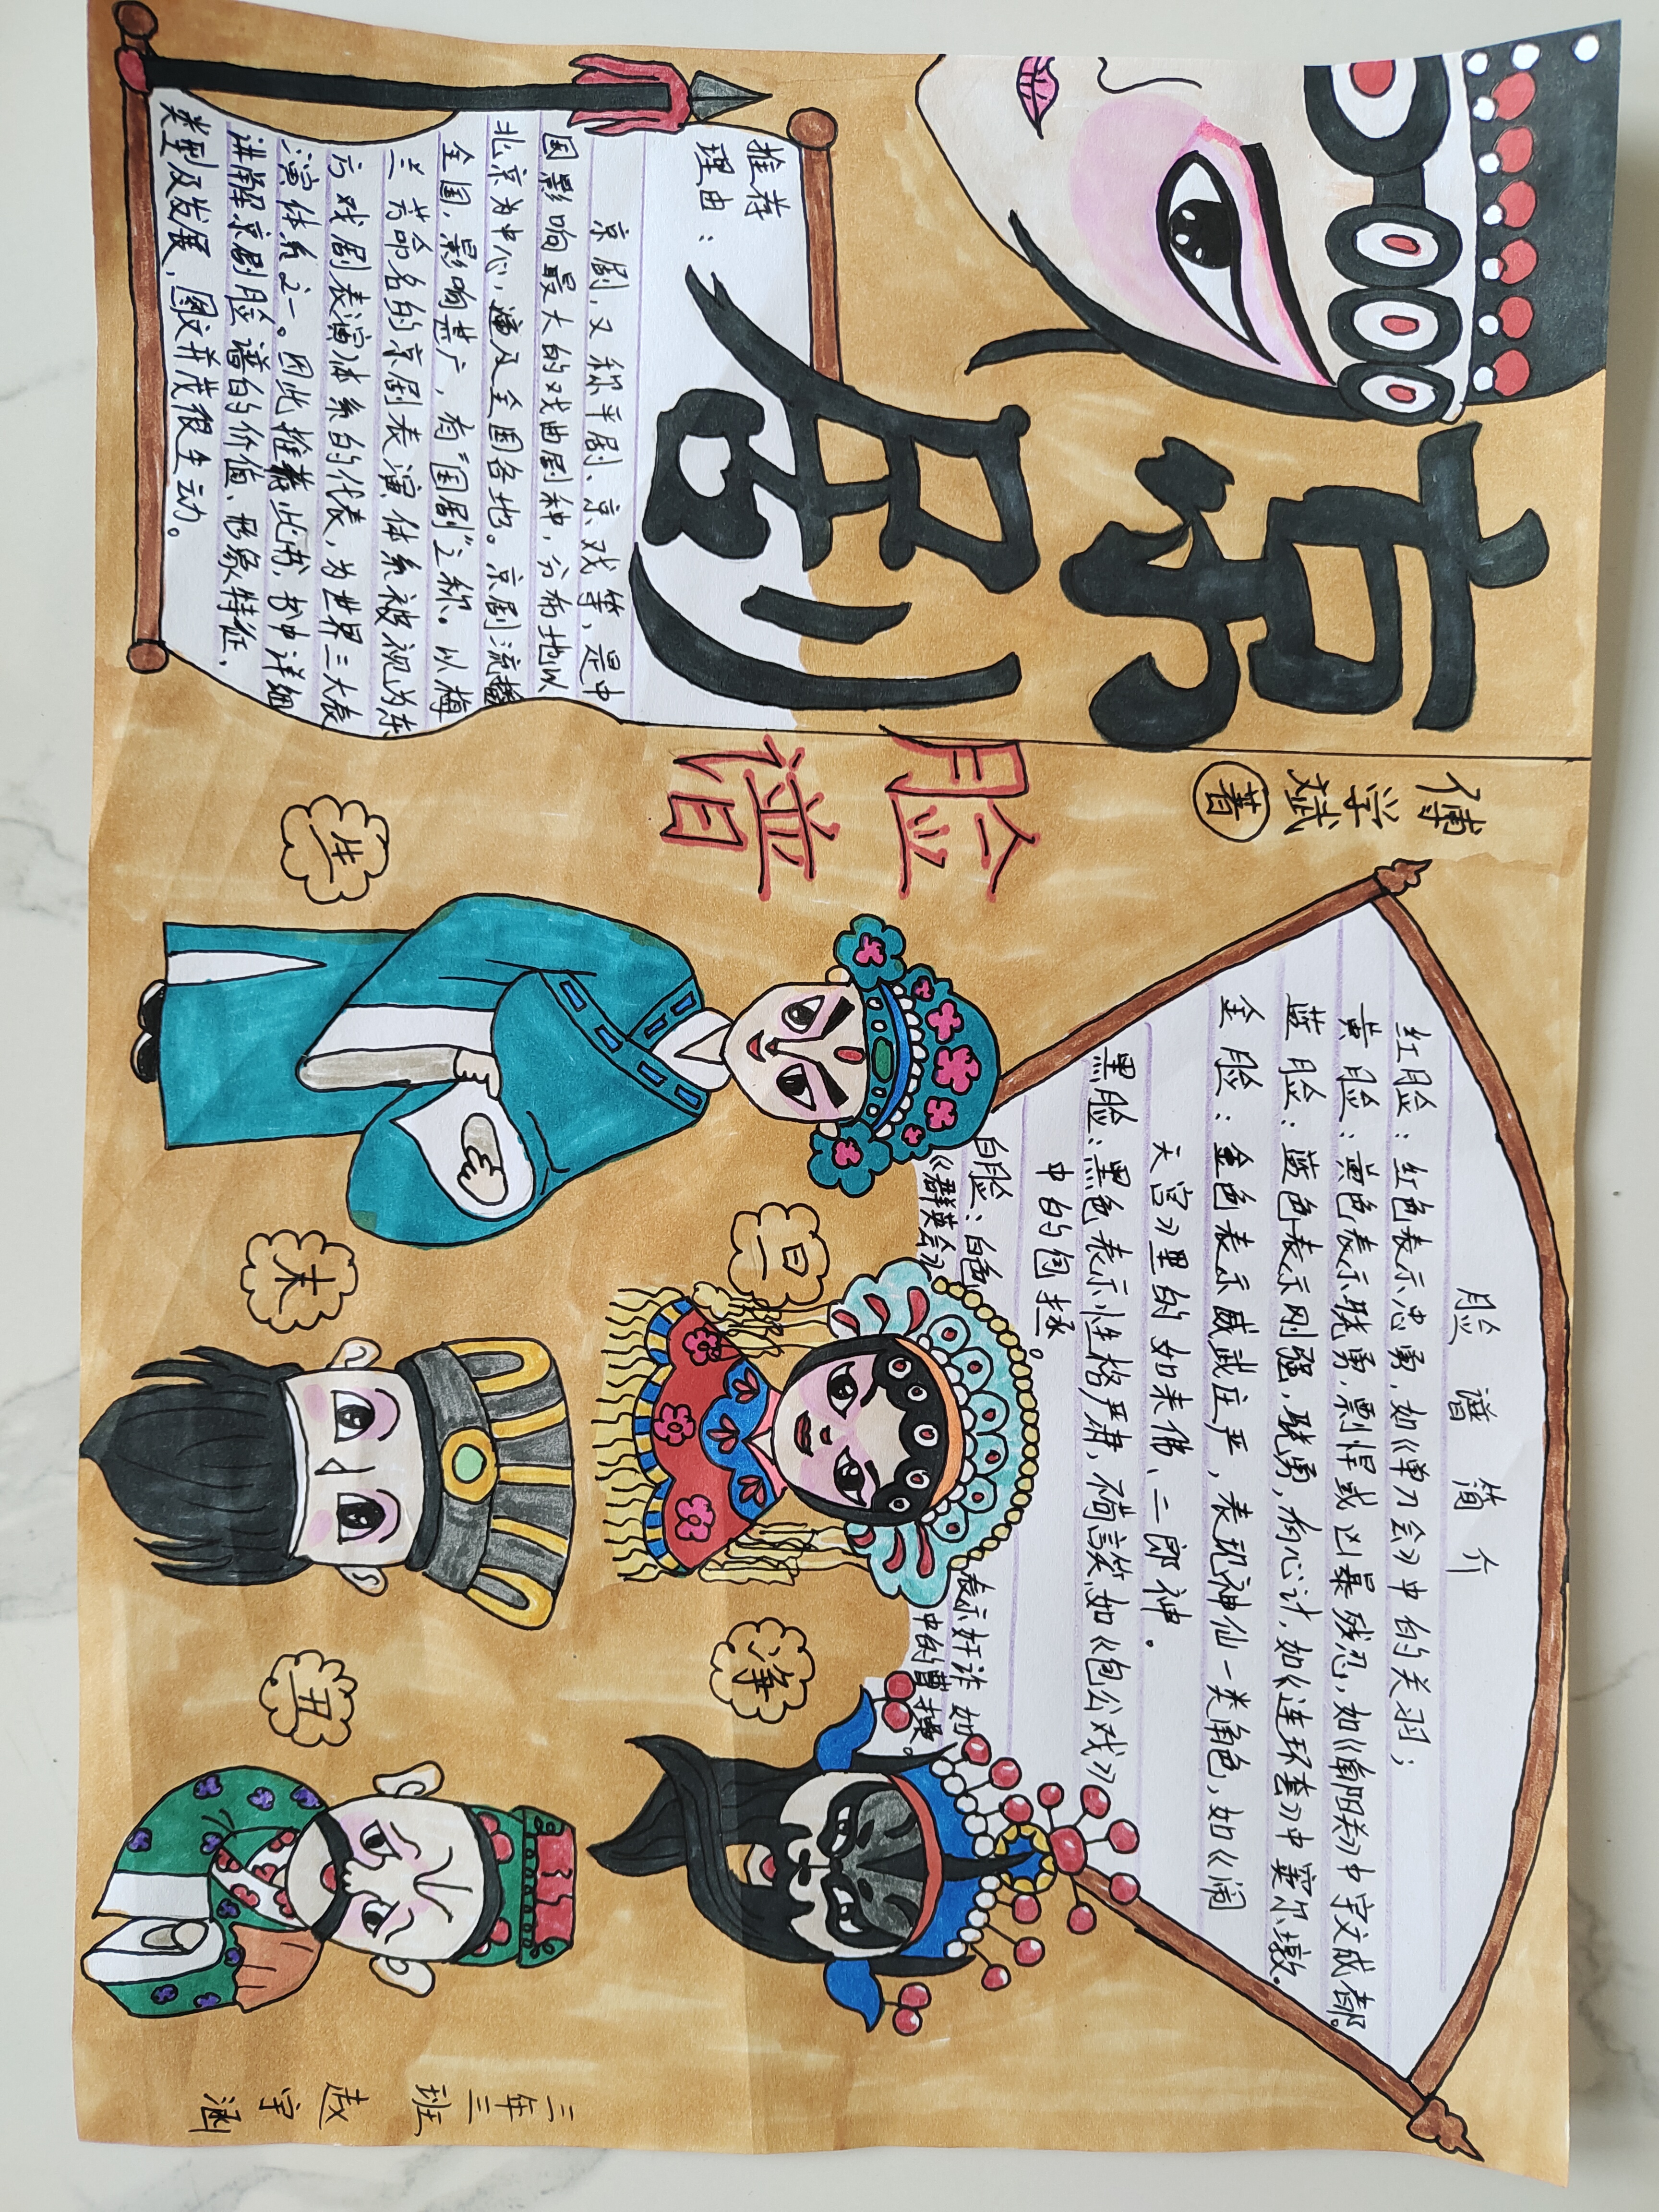 京剧
脸谱
傅学斌
著
推荐
理由：
京剧，又称平剧、京戏等，是中
国影响最大的戏曲剧种，分布地以
北京为中心，遍及全国各地。京剧流播
全国，影响甚广，有“国剧”之称。以梅
兰芳命名的京剧表演体系被视为东
方戏剧表演体系的代表，为世界三大表
演体系之一。因此推荐此书，书中详细
讲解京剧脸谱的价值、形象特征、
类型及发展，图文并茂很生动。
脸谱简介
红脸：红色表示忠勇，如《单刀会》中的关羽；
黄脸：黄色表示骁勇，剽悍或凶暴残忍，如《南阳关》中宇文成都。
蓝脸：蓝色表示刚强，骁勇，有心计，如《连环套》中窦尔墩。
金脸：金色表示威武庄严，表现神仙一类角色，如《闹
天宫》里的如来佛、二郎神。
黑脸：黑色表示性格严肃，不苟言笑，如《包公戏》
中的包拯。
白脸：白色表示奸诈 如
《群英会》中的曹操。
生
旦
净
末
丑
三年三
班
赵
宇
涵